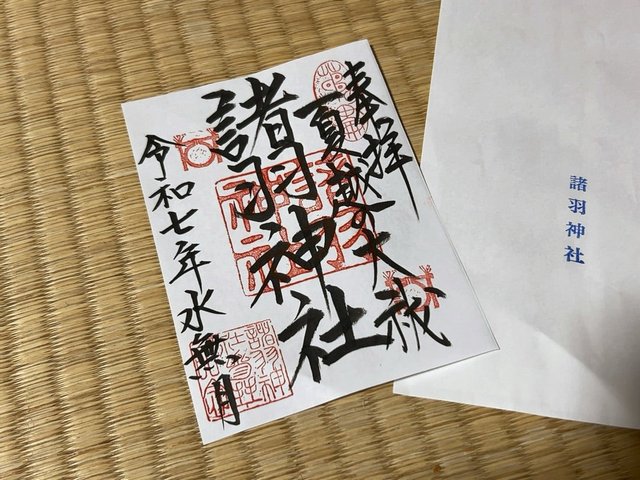 奉拝
夏越大祓
諸羽神社
令和七年水無月
諸羽神社